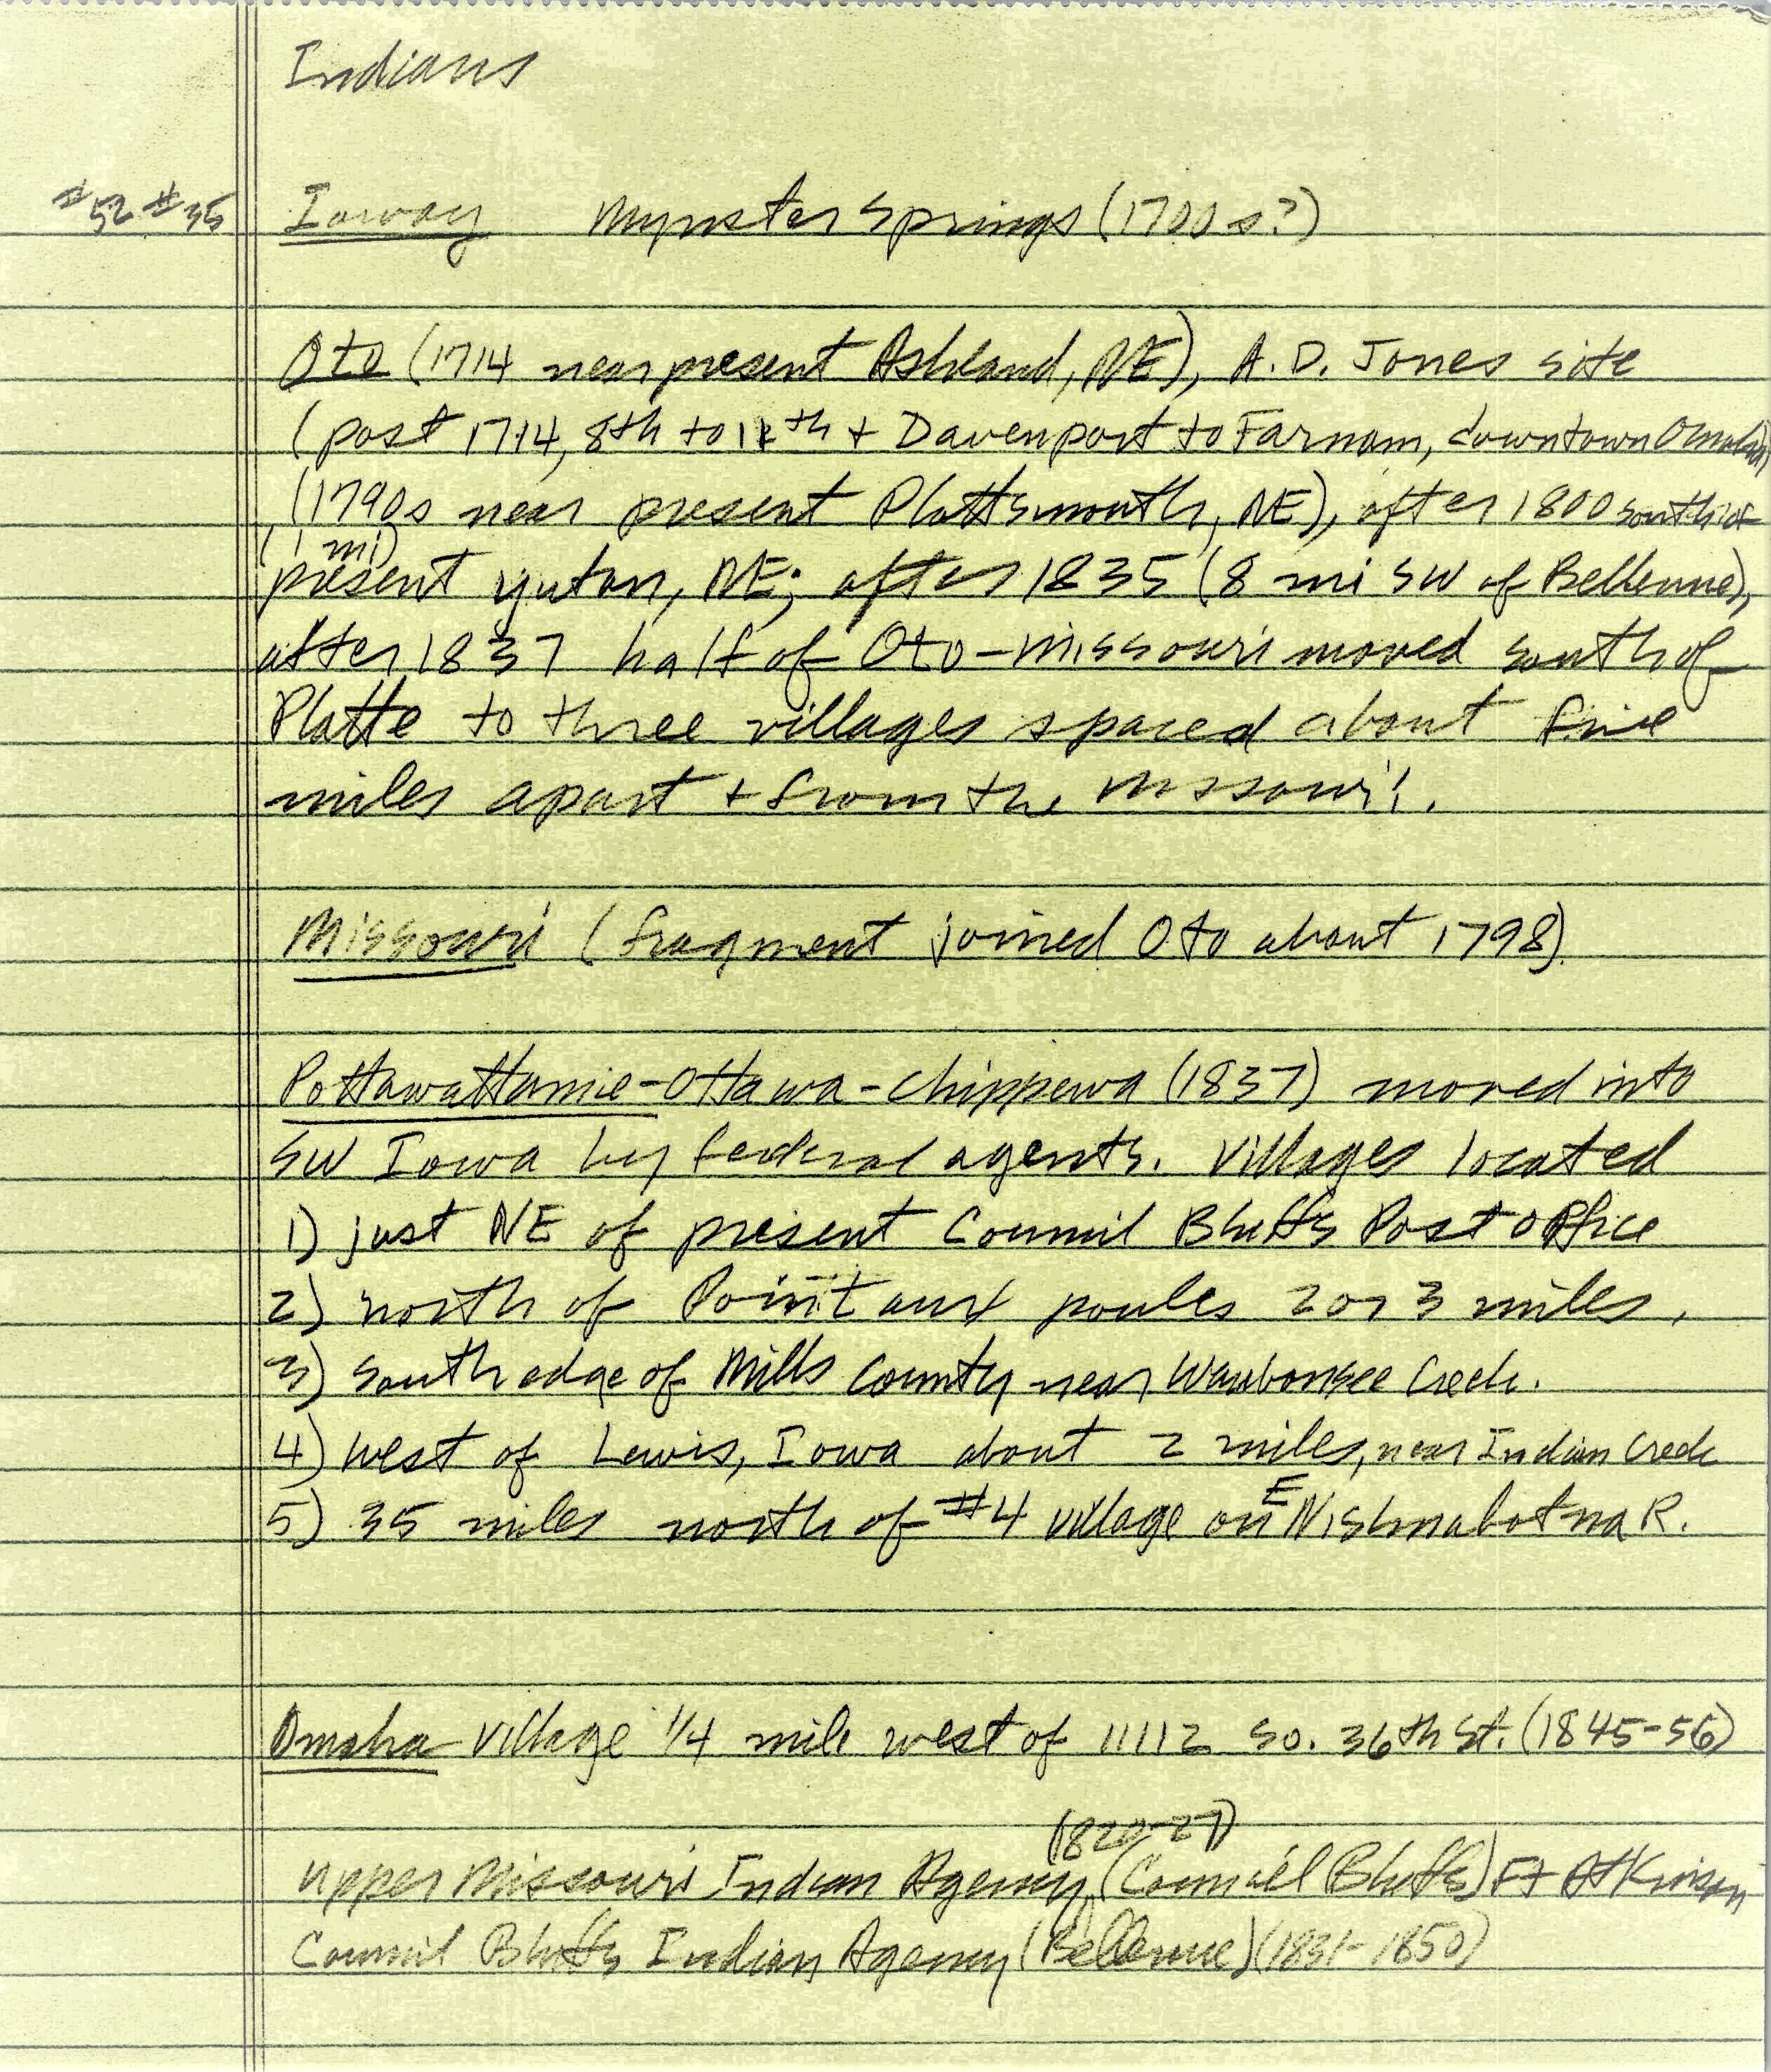 Indians
#52 #35 Ioway Mynster Springs (1700s?)
Oto (1714 near present Ashland, NE), A.D. Jones site
(post 1714, 8th to 11th + Davenport to Farnam, downtown Omaha)
(1790s near present Plattsmouth, NE), after 1800 south of
(1 mi)
present Yutan, NE; after 1835 (8 mi SW of Bellevue),
after 1837 half of Oto-Missouri moved south of
Platte to three villages spaced about five
miles apart + from the Missouri.
Missouri (fragment joined Oto about 1798)
Pottawattamie-Ottawa-Chippewa (1837) moved into
SW Iowa by federal agents. Villages located
1) just NE of present Council Bluffs Post Office
2) north of Point aux poules 2 or 3 miles.
3) south edge of Mills County near Waubonsee Creek.
4) west of Lewis, Iowa about 2 miles, near Indian Creek
5) 35 miles north of #4 village on E Nishnabotna R.
Omaha Village 1/4 mile west of 11112 So. 36th St. (1845-56)
(1820-27)
Upper Missouri Indian Agency (Council Bluffs) Ft Atkinson
Council Bluffs Indian Agency (Bellevue) (1831-1850)